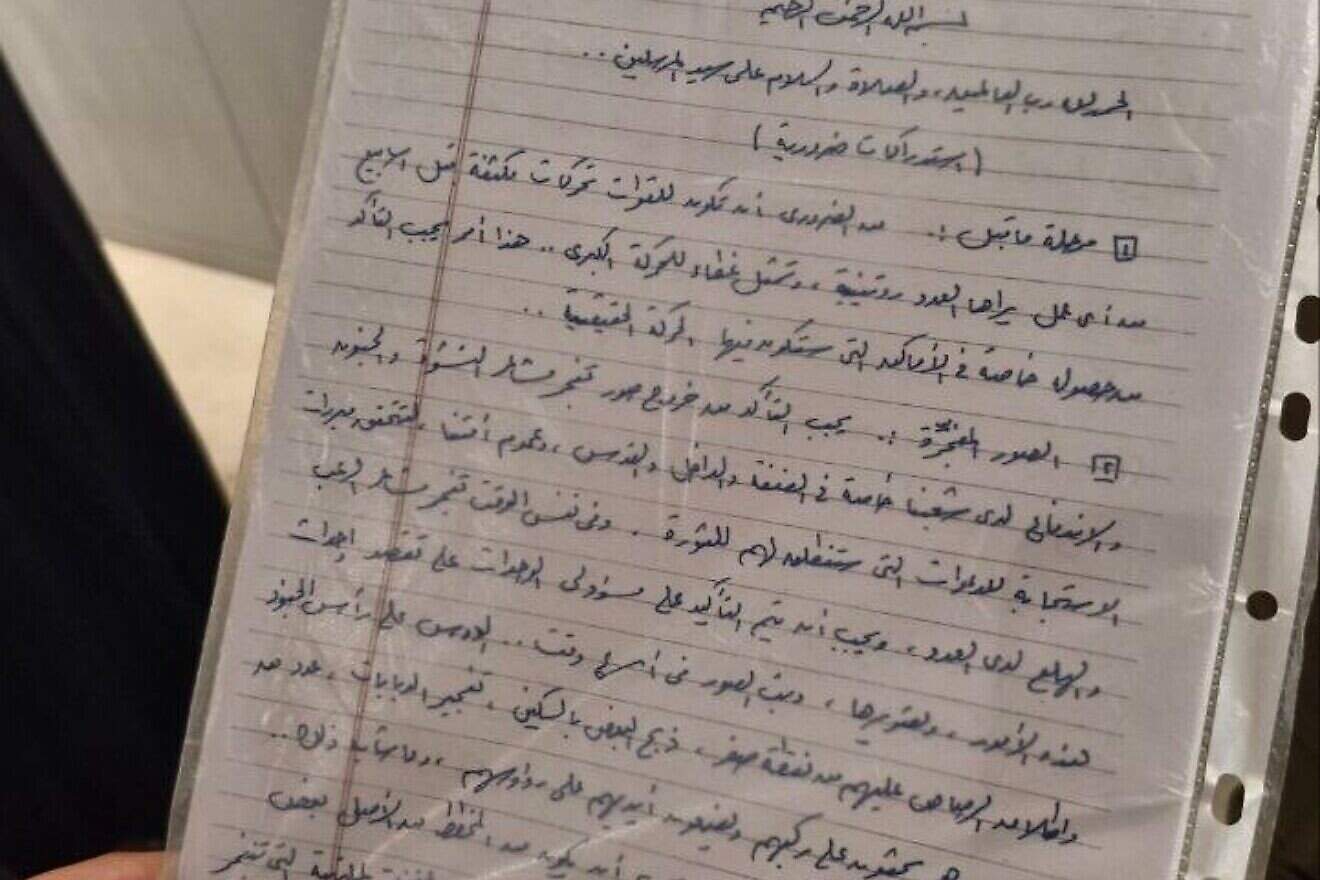 بسم الله الرحمن الرحيم
الحمد لله رب العالمين، والصلاة والسلام على سيد المرسلين..
(استدراكات ضرورية)
١ مرحلة ما قبل :. من الضروري أن تكون للقوات تحركات مكثفة قبل الأسابيع
من أي عمل يراها العدو روتينية، وتمثل غطاء للحركة الكبرى.. هذا أمر يجب التأكد
من حصوله خاصة في الأماكن التي ستكون فيها الحركة الحقيقية..
٢ الصور المفجرة :. يجب التأكد من خروج صور تفجر مشاعر النشوة والجنون
والاندفاع لدى شعبنا خاصة في الضفة والداخل والقدس، وعموم أمتنا، لتتحقق بدرات
الاستجابة للدعوات التي ستنطلق لهم للثورة. وفي نفس الوقت تفجر مشاعر الرعب
والهلع لدى العدو، ويجب أن يتم التأكيد على مسؤولي الوحدات على تقصد إحداث
هذه الأمور، وتصويرها، وبث الصور في أسرع وقت.. الدوس على رأس الجنود
وإطلاق الرصاص عليهم من نقطة صفر، ذبح البعض بالسكين، تفجير الدبابات، عدد من
يجثون على ركبهم ويضعون أيديهم على رؤوسهم، وما شابه ذلك..
أن يكون من المخطط من الأصل بعض
التي تفجر